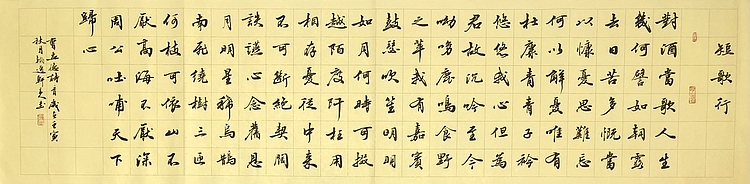 短歌行
對酒當歌人生
幾何譬如朝露
去日苦多慨當
以慷憂思難忘
何以解憂唯有
杜康青青子衿
悠悠我心但為
君故沉吟至今
呦呦鹿鳴食野
之苹我有嘉賓
鼓瑟吹笙明明
如月何時可掇
越陌度阡枉用
相存憂從中來
不可斷絕契闊
談讌心念舊恩
月明星稀烏鵲
南飛繞樹三匝
何枝可依山不
厭高海不厭深
周公吐哺天下
歸心
曹孟德詩首歲在壬寅
秋月